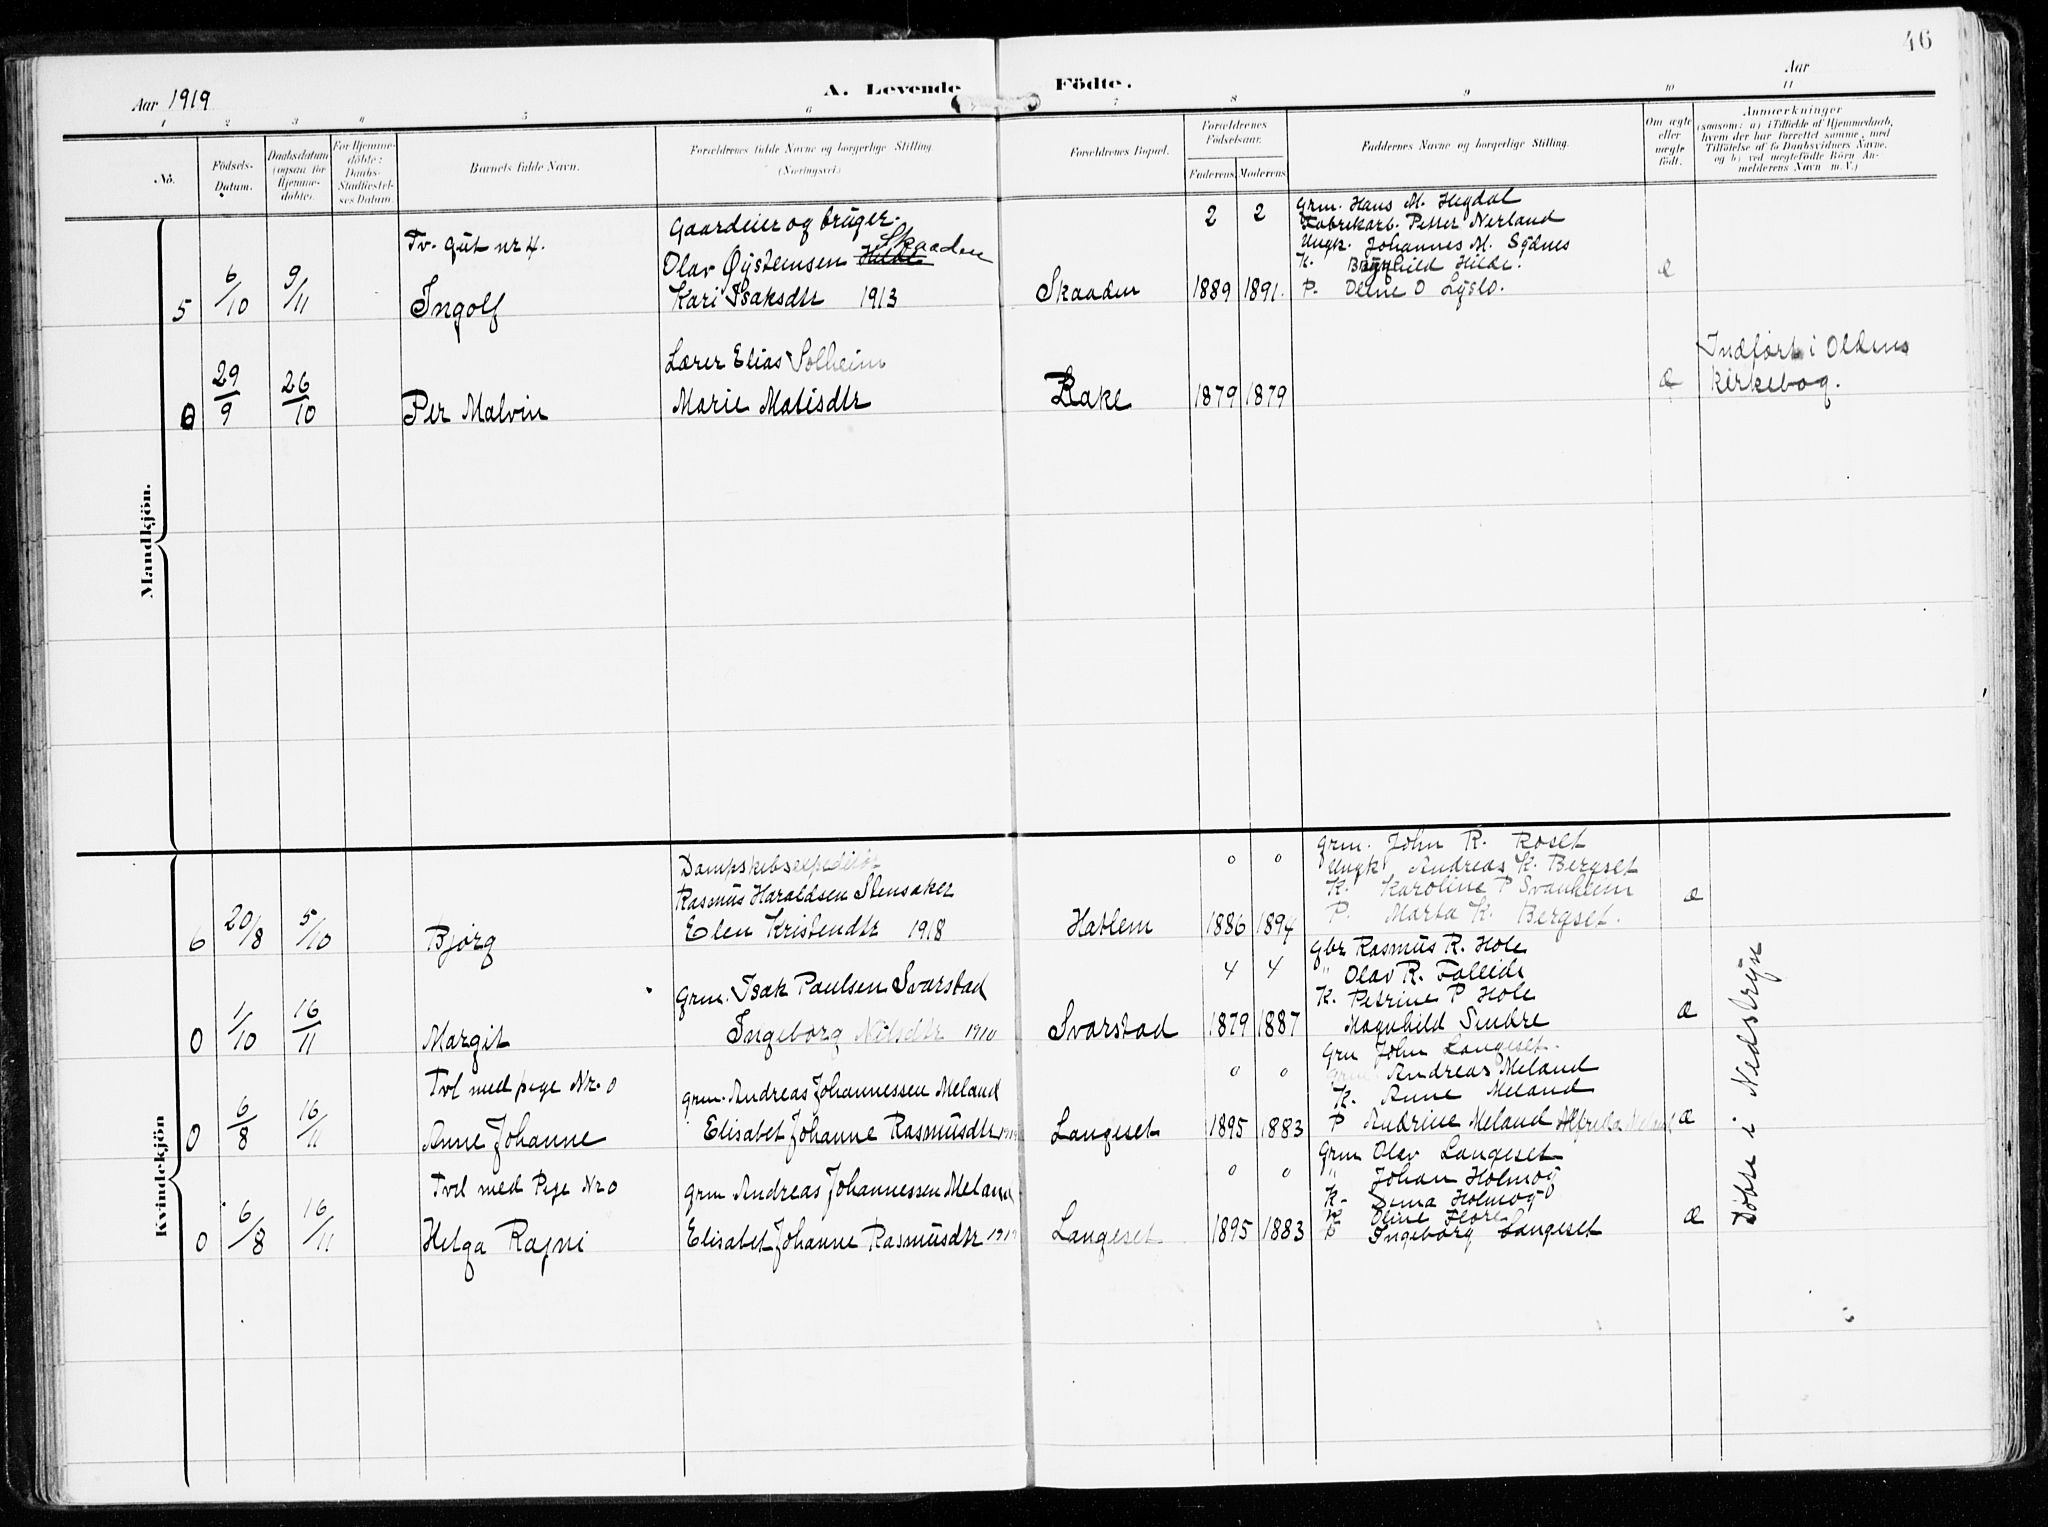 46
Aar 1919
A. Levende Födte.
Aar
1 2 3 4 5 6 7 8 9 10 11
No.
Födsels-Datum.
Daabsdatum (ogsaa for Hjemme-döbte).
For Hjemme-döbte: Daabs-Stadfæstel-ses Datum.
Barnets fulde Navn.
Forældrenes fulde Navne og borgerlige Stilling (Næringsvei.)
Forældrenes Bopæl.
Forældrenes Födselsaar.
Faderens. Moderens.
Faddernes Navne og borgerlige Stilling.
Om ægte eller uægte födt.
Anmærkninger
(saasom: a) i Tilfælde af Hjemmedaab,
hvem der har forrettet samme, med
Tilföielse af to Daabsvidners Navne,
og b) ved uægtefödte Börn An-
melderens Navn m. V.)
Mandkjön.
5 6/10 9/11
Tv. gut nr 4.
Ingolf
Gaardeier og bruger.
Skaaden
Olav Øistensen Hilde
Kari Isaksdtr 1913
Skaaden
2 2
1889 1891.
Grm. Hans M. Hegdal
Fabrikarb. Petter Nerland
Ungk. Johannes M. Sydnes
K. Brynhild Hilde.
P. Oline O Lyslo.
Æ
0 29/9 26/10
Per Malvin
Lærer Elias Solheim
Marie Matisdtr
Rake
1879 1879
Æ
Indført i Oldens
kirkebog.
Kvindekjön
6 20/8 5/10
Bjørg
Dampskibsexpeditør
Rasmus Haraldsen Stensaker
Elen Kristendtr 1918
Hatlem
0 0
1886 1894
Grm. John R. Roset
Ungk. Andreas K. Bergset
K. Karoline P Svanheim
P. Marta K. Bergset.
Æ
0 1/10 16/11
Margit
Grm. Isak Paulsen Svarstad
Ingeborg Nilsdtr 1910
Svarstad
4 4
1879 1887
Gbr Rasmus R. Hole
" Olav R. Faleide
K. Petrine P Hole
Magnhild Sindre
Æ
0 6/8 16/11
Tvl med pige Nr. 0
Anne Johanne
grm. Andreas Johannessen Meland
Elisabet Johanne Rasmusdtr 1919
Langeset
0 0
1895 1883
Grm John Langeset.
Grm. Andreas Meland
K. Anne Meland
P Andrine Meland Alfrida Meland
Æ
0 6/8 16/11
Tvil med Pige Nr 0
Helga Ragni
grm Andreas Johannessen Meland
Elisabet Johanne Rasmusdtr 1919
Langeset
0 0
1895 1883
Grm Olav Langeset
" Johan Holmøy
K. Sina Holmøy
K Oline Flore
P Ingeborg Langeset
Æ
Døbte i Nedstryn